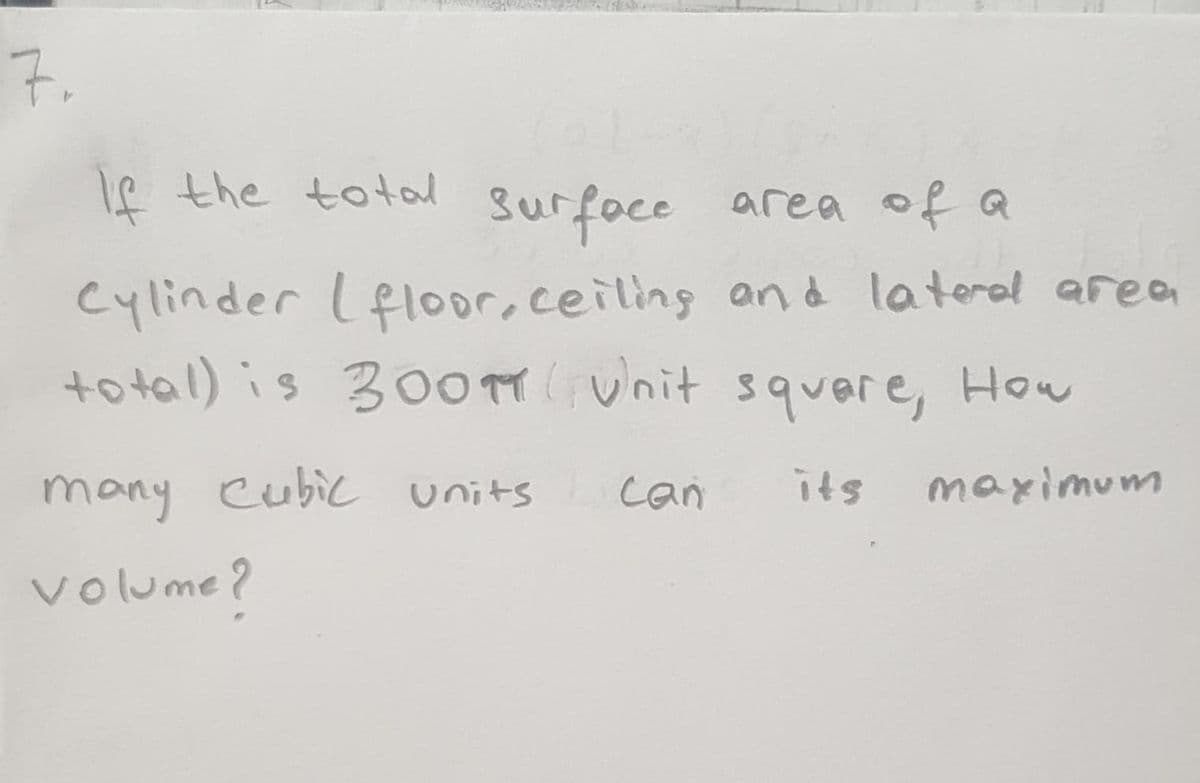 7.
If the total surface area of a
Cylinder (floor, ceiling and lateral area
total) is 300π unit square, How
many cubic units can its maximum
volume?